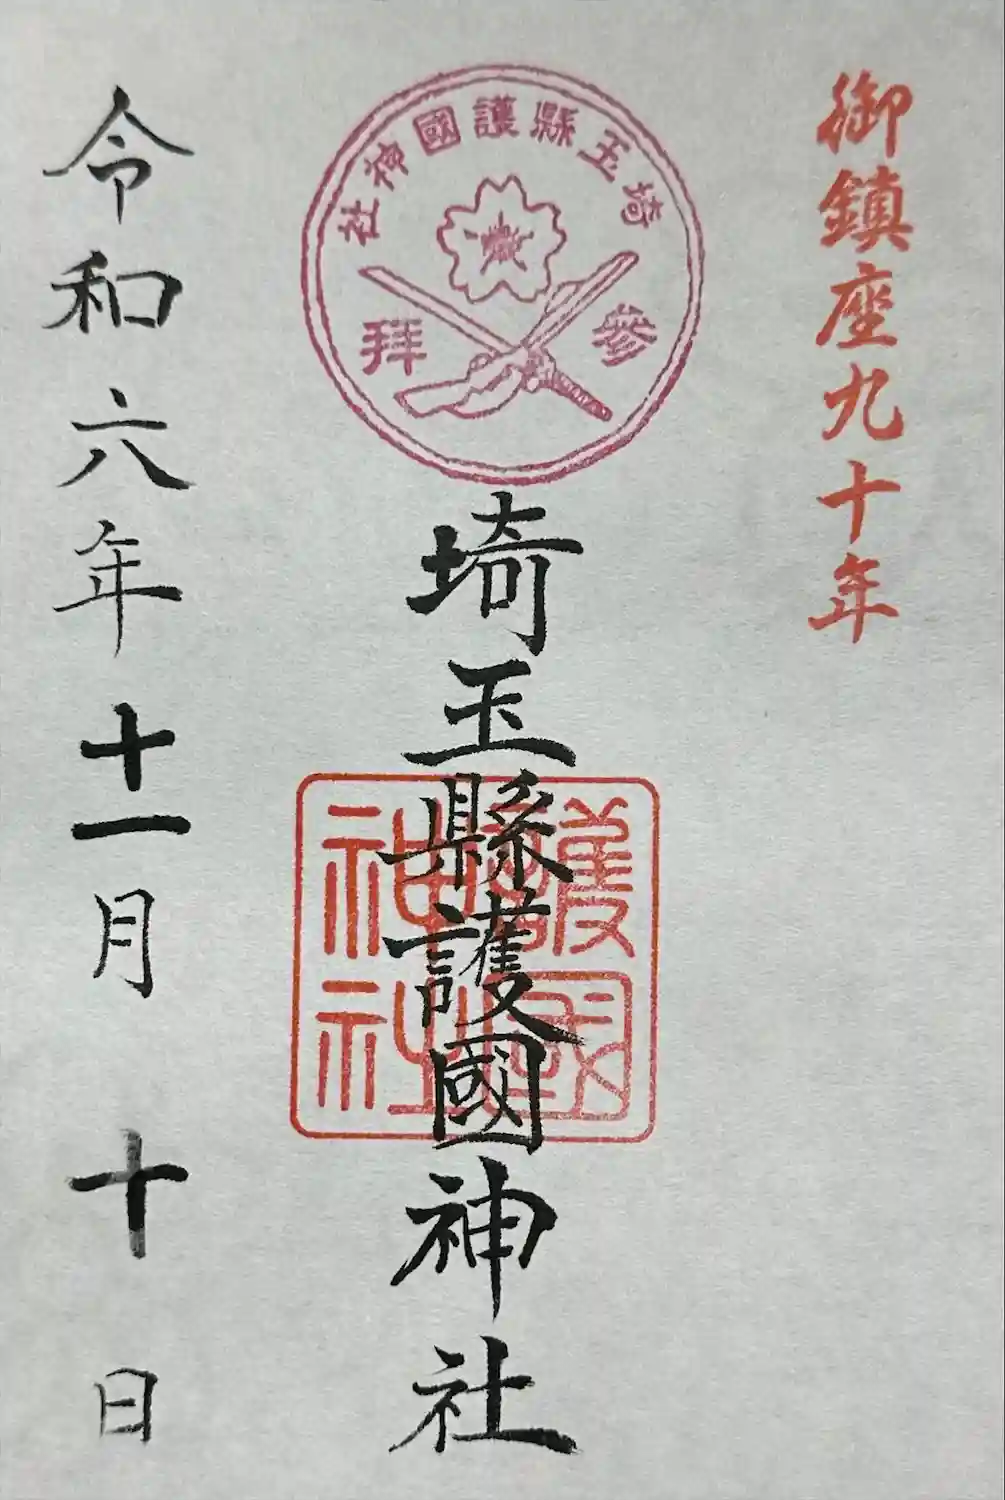 御鎮座九十年
埼玉縣護國神社
參拜
埼玉縣護國神社
護國神社
令和六年十一月十日